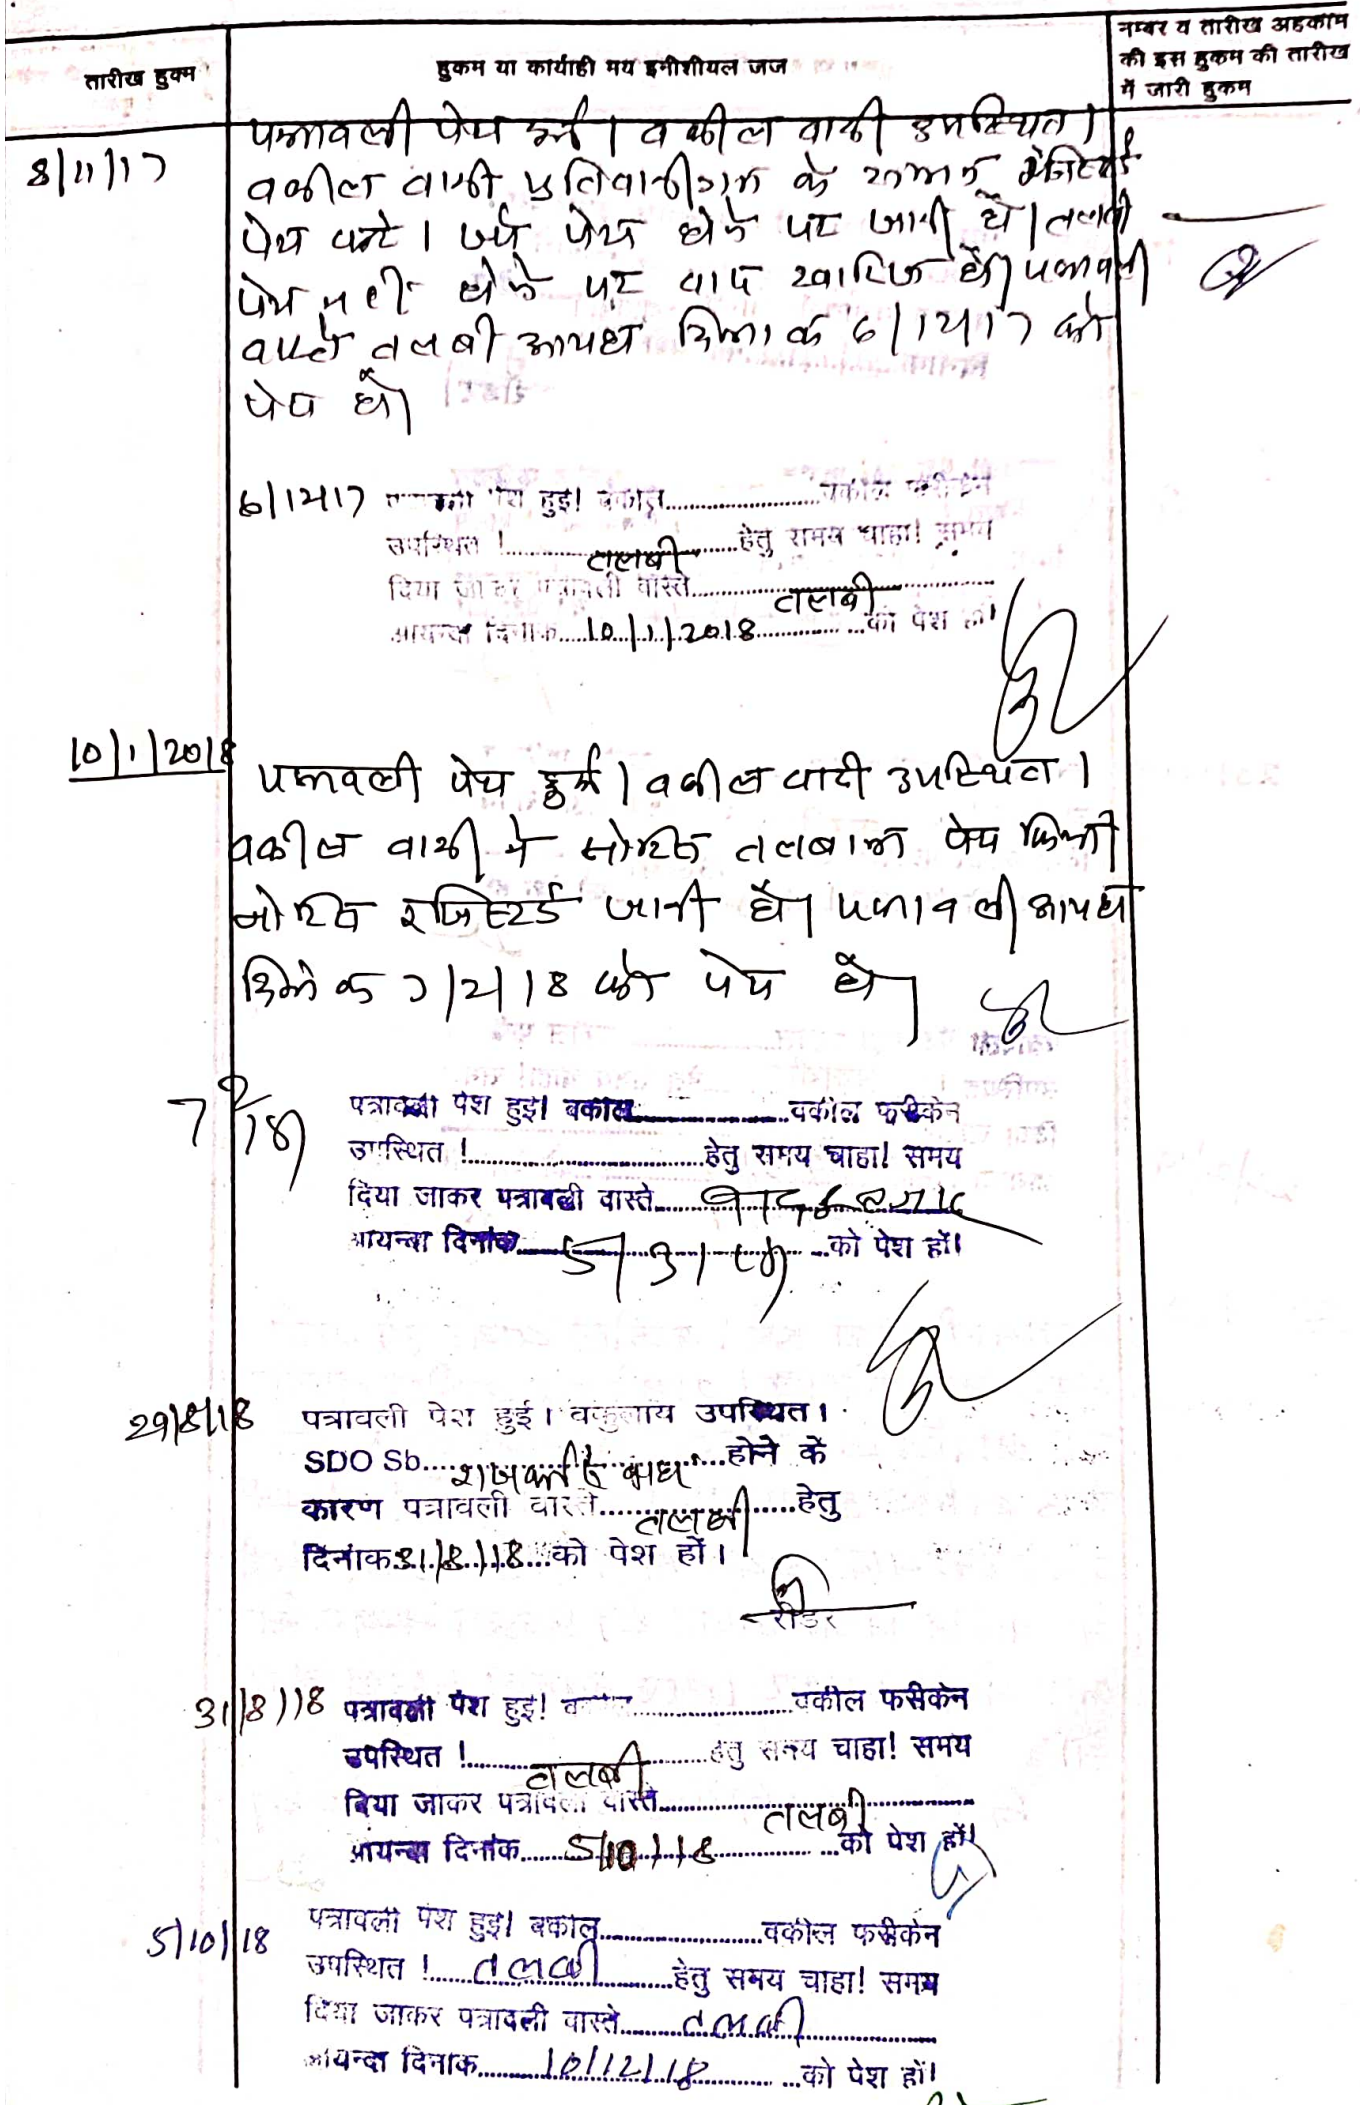 तारीख हुक्म
हुकम या कार्याही मय इनीशीयल जज
नम्बर व तारीख अहकाम
की इस हुकम की तारीख
में जारी हुकम
8/11/17
पत्रावली पेश हुई। वकील वादी उपस्थित।
वकील वादी प्रतिवादीगण के सम्मन रजिस्टर्ड
पेश करे। पेश होने पर जारी हो। तलबी
पेश नही होने पर वाद खारिज हो। पत्रावली
वास्ते तलबी आयंदा दिनांक 6/12/17 को
पेश हो।
6/12/17 पेश हुई! वकील..........वकील फरीकेन
उपस्थित !..........तलबी..........हेतु समय चाहा! समय
दिया जाकर पत्रावली वास्ते..........तलबी
आयन्दा दिनांक..........10/1/2018..........को पेश हो
10/1/2018
पत्रावली पेश हुई। वकील वादी उपस्थित।
वकील वादी ने नोटिस तलबाना पेश किया
नोटिस रजिस्टर्ड जारी हो। पत्रावली आयंदा
दिनांक 7/2/18 को पेश हो।
7/2/18
पत्रावली पेश हुई। वकील..........वकील फरीकेन
उपस्थित !..........हेतु समय चाहा! समय
दिया जाकर पत्रावली वास्ते..........
आयन्दा दिनांक..........5/3/18..........को पेश हों।
29/8/18 पत्रावली पेश हुई। वकुलाय उपस्थित।
SDO Sb..........राजकार्य..........होने के
कारण पत्रावली वास्ते..........तलबी..........हेतु
दिनांक 31/8/18 को पेश हों।
रीडर
31/8/18 पत्रावली पेश हुई! वकील..........वकील फरीकेन
उपस्थित !..........तलबी..........हेतु समय चाहा! समय
दिया जाकर पत्रावली वास्ते..........तलबी
आयन्दा दिनांक..........5/10/18..........को पेश हों।
5/10/18 पत्रावली पेश हुई। वकील..........वकील फरीकेन
उपस्थित !..........तलबी..........हेतु समय चाहा! समय
दिया जाकर पत्रावली वास्ते..........तलबी
आयन्दा दिनांक..........10/12/18..........को पेश हों।